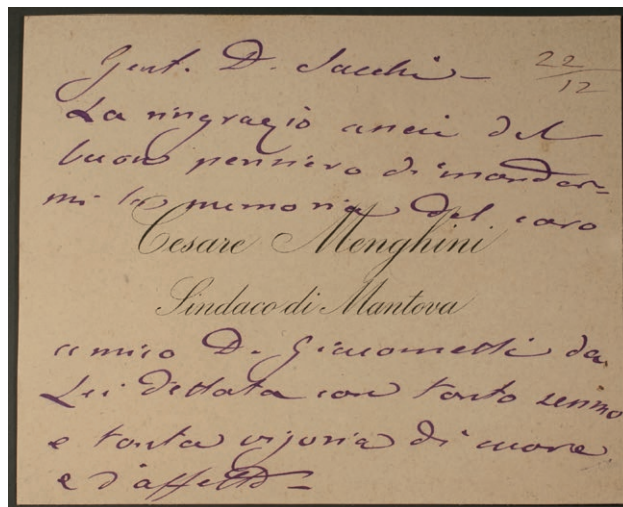 Gent. D. Sacchi -
22/12
La ringrazio anch del
buon pensiero di mandar-
mi la memoria del caro
Cesare Menghini
Sindaco di Mantova
amico D. Giacometti da
Lei dettata con tanto senno
e tanta vigoria di cuore
e d'affetto -